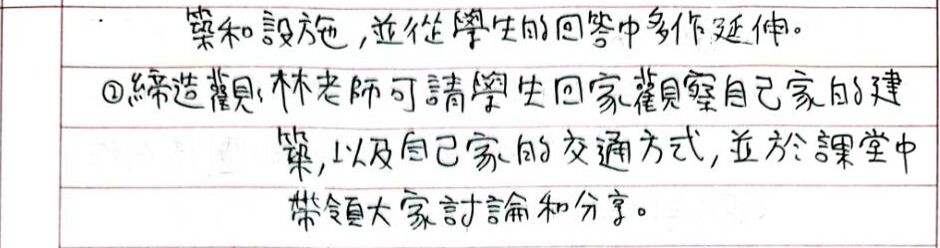 築和設施,並從學生的回答中多作延伸。
②締造觀:林老師可請學生回家觀察自己家的建
築,以及自己家的交通方式,並於課堂中
帶領大家討論和分享。